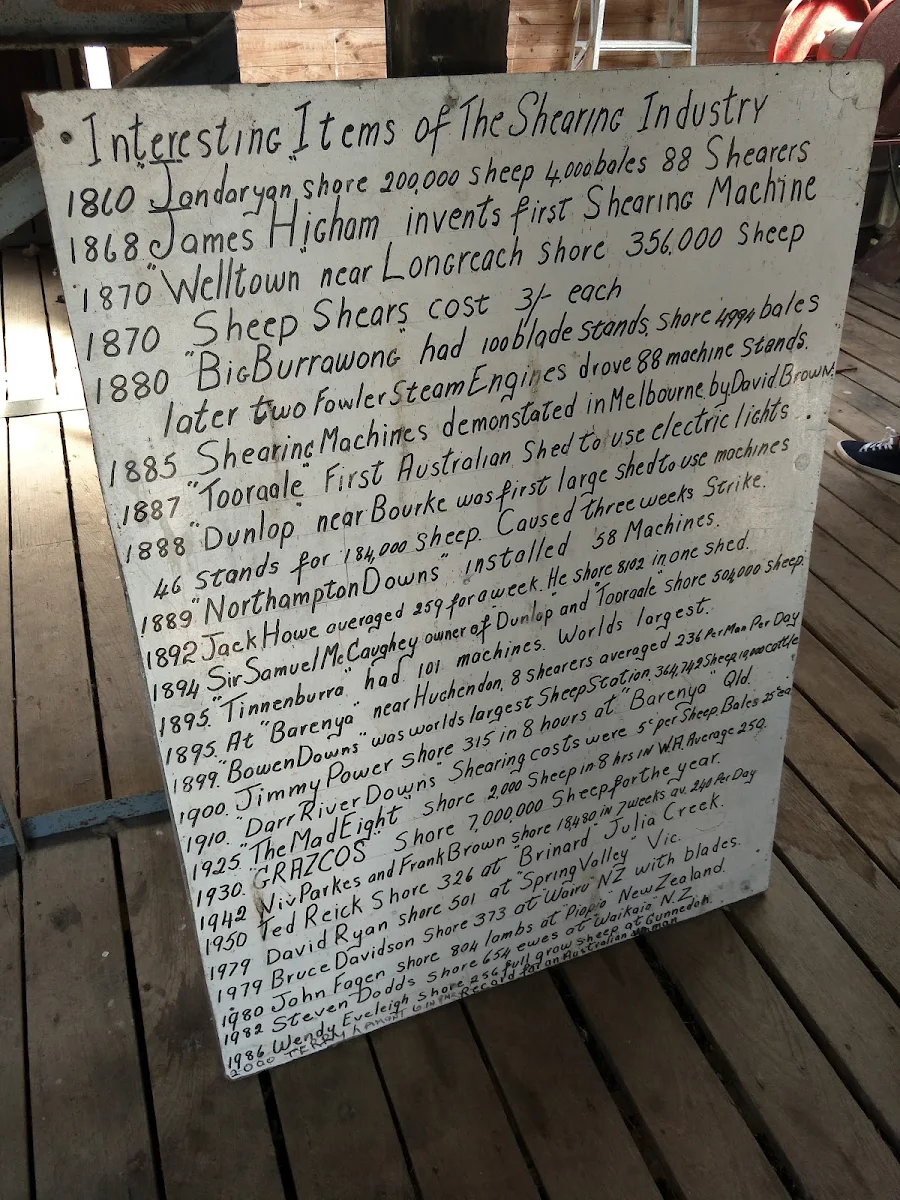 Interesting Items of The Shearing Industry
1860 "Jondaryan" shore 200,000 sheep 4,000 bales 88 Shearers
1868 James Higham invents first Shearing Machine
1870 "Welltown" near Longreach shore 356,000 Sheep
1870 Sheep Shears cost 3/- each
1880 "Big Burrawong" had 100 blade stands, shore 4994 bales
later two Fowler Steam Engines drove 88 machine Stands.
1885 Shearing Machines demonstated in Melbourne by David Brown.
1887 "Toorale" First Australian Shed to use electric lights.
1888 "Dunlop" near Bourke was first large shed to use machines
46 stands for 184,000 sheep. Caused three weeks Strike.
1889 "Northampton Downs" installed 58 Machines.
1892 Jack Howe averaged 259 for a week. He shore 8102 in one shed.
1894 Sir Samuel McCaughey owner of "Dunlop" and "Toorale" shore 504,000 sheep.
1895. "Tinnenburra" had 101 machines. Worlds largest.
1895. At "Barenya" near Hughendon, 8 shearers averaged 236 Per Man Per Day
1899. "Bowen Downs" was worlds largest Sheep Station, 364,742 Sheep cattle
1900. Jimmy Power shore 315 in 8 hours at "Barenya" Qld.
1910. "Darr River Downs" Shearing costs were 5c per Sheep, Bales 25c ea
1925. "The Mad Eight" shore 2,000 Sheep in 8 hrs in W.A. Average 250.
1930. "GRAZCOS" Shore 7,000,000 Sheep for the year.
1942 Niv Parkes and Frank Brown shore 18,480 in 7 weeks av. 240 Per Day
1950 Ted Reick Shore 326 at "Brinard" Julia Creek.
1979 David Ryan shore 501 at "Spring Valley" Vic.
1979 Bruce Davidson Shore 373 at "Wairu" NZ with blades.
1980 John Fagen shore 804 lambs at "Piopio" New Zealand.
1982 Steven Dodds shore 654 ewes at "Waikaia" N.Z.
1986 Wendy Eveleigh shore 256 full grow sheep at Gunnedoh.
Record for an Australian woman
2000 TERRY LAMONT